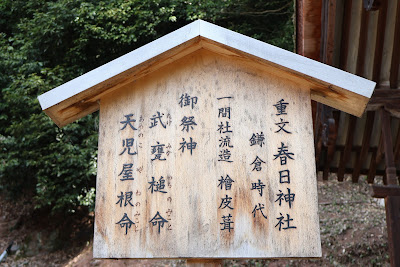 重文 春日神社
鎌倉時代
一間社流造 檜皮葺
御祭神
武甕槌命
天児屋根命